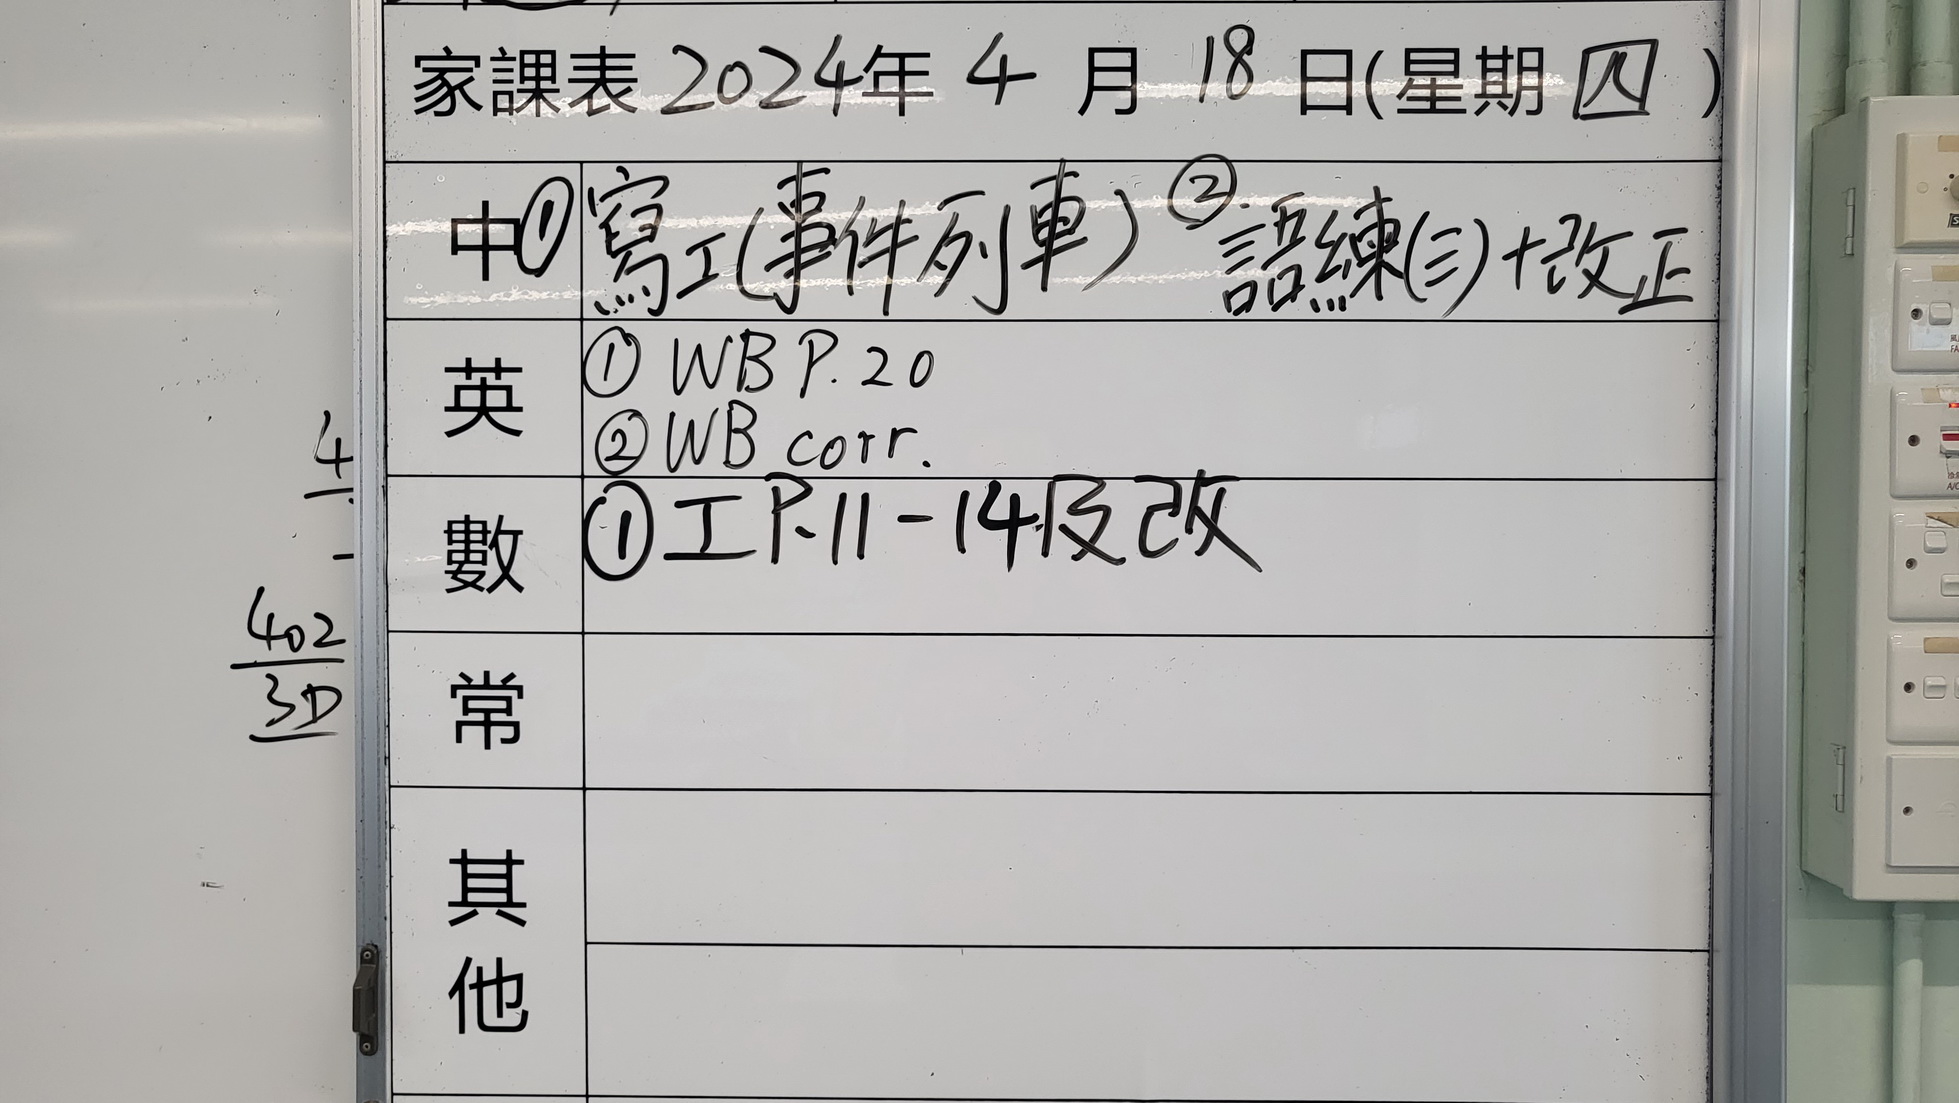 家課表 2024年 4 月 18 日(星期 四 )
中 ① 寫工(事件列車) ② 語練(三)+改正
英 ① WB P. 20
② WB corr.
數 ① 工 P.11-14及改
常
其他
4
402
3D